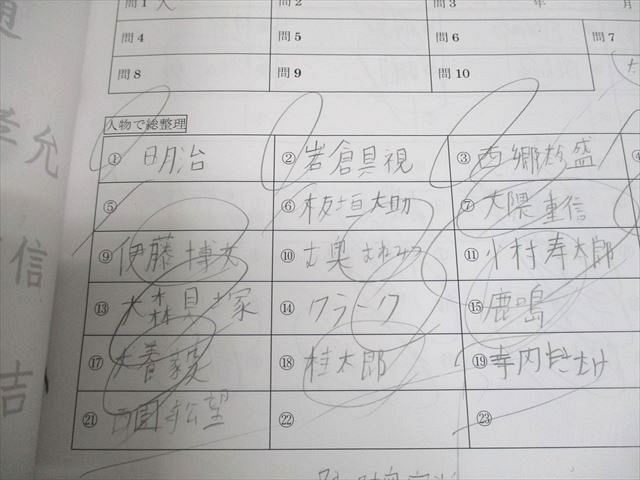 問1 人 問2 問3 年 月
問4 問5 問6 問7
問8 問9 問10
人物で総整理
① 明治 ② 岩倉具視 ③ 西郷隆盛 ④
⑤ ⑥ 板垣大助 ⑦ 大隈重信
⑨ 伊藤博文 ⑩ む奥むねみつ ⑪ 小村寿太郎
⑬ 大森貝塚 ⑭ クラーク ⑮ 鹿鳴
⑰ 犬養毅 ⑱ 桂太郎 ⑲ 寺内
㉑ 西園松望 ㉒ ㉓
允
信
吉